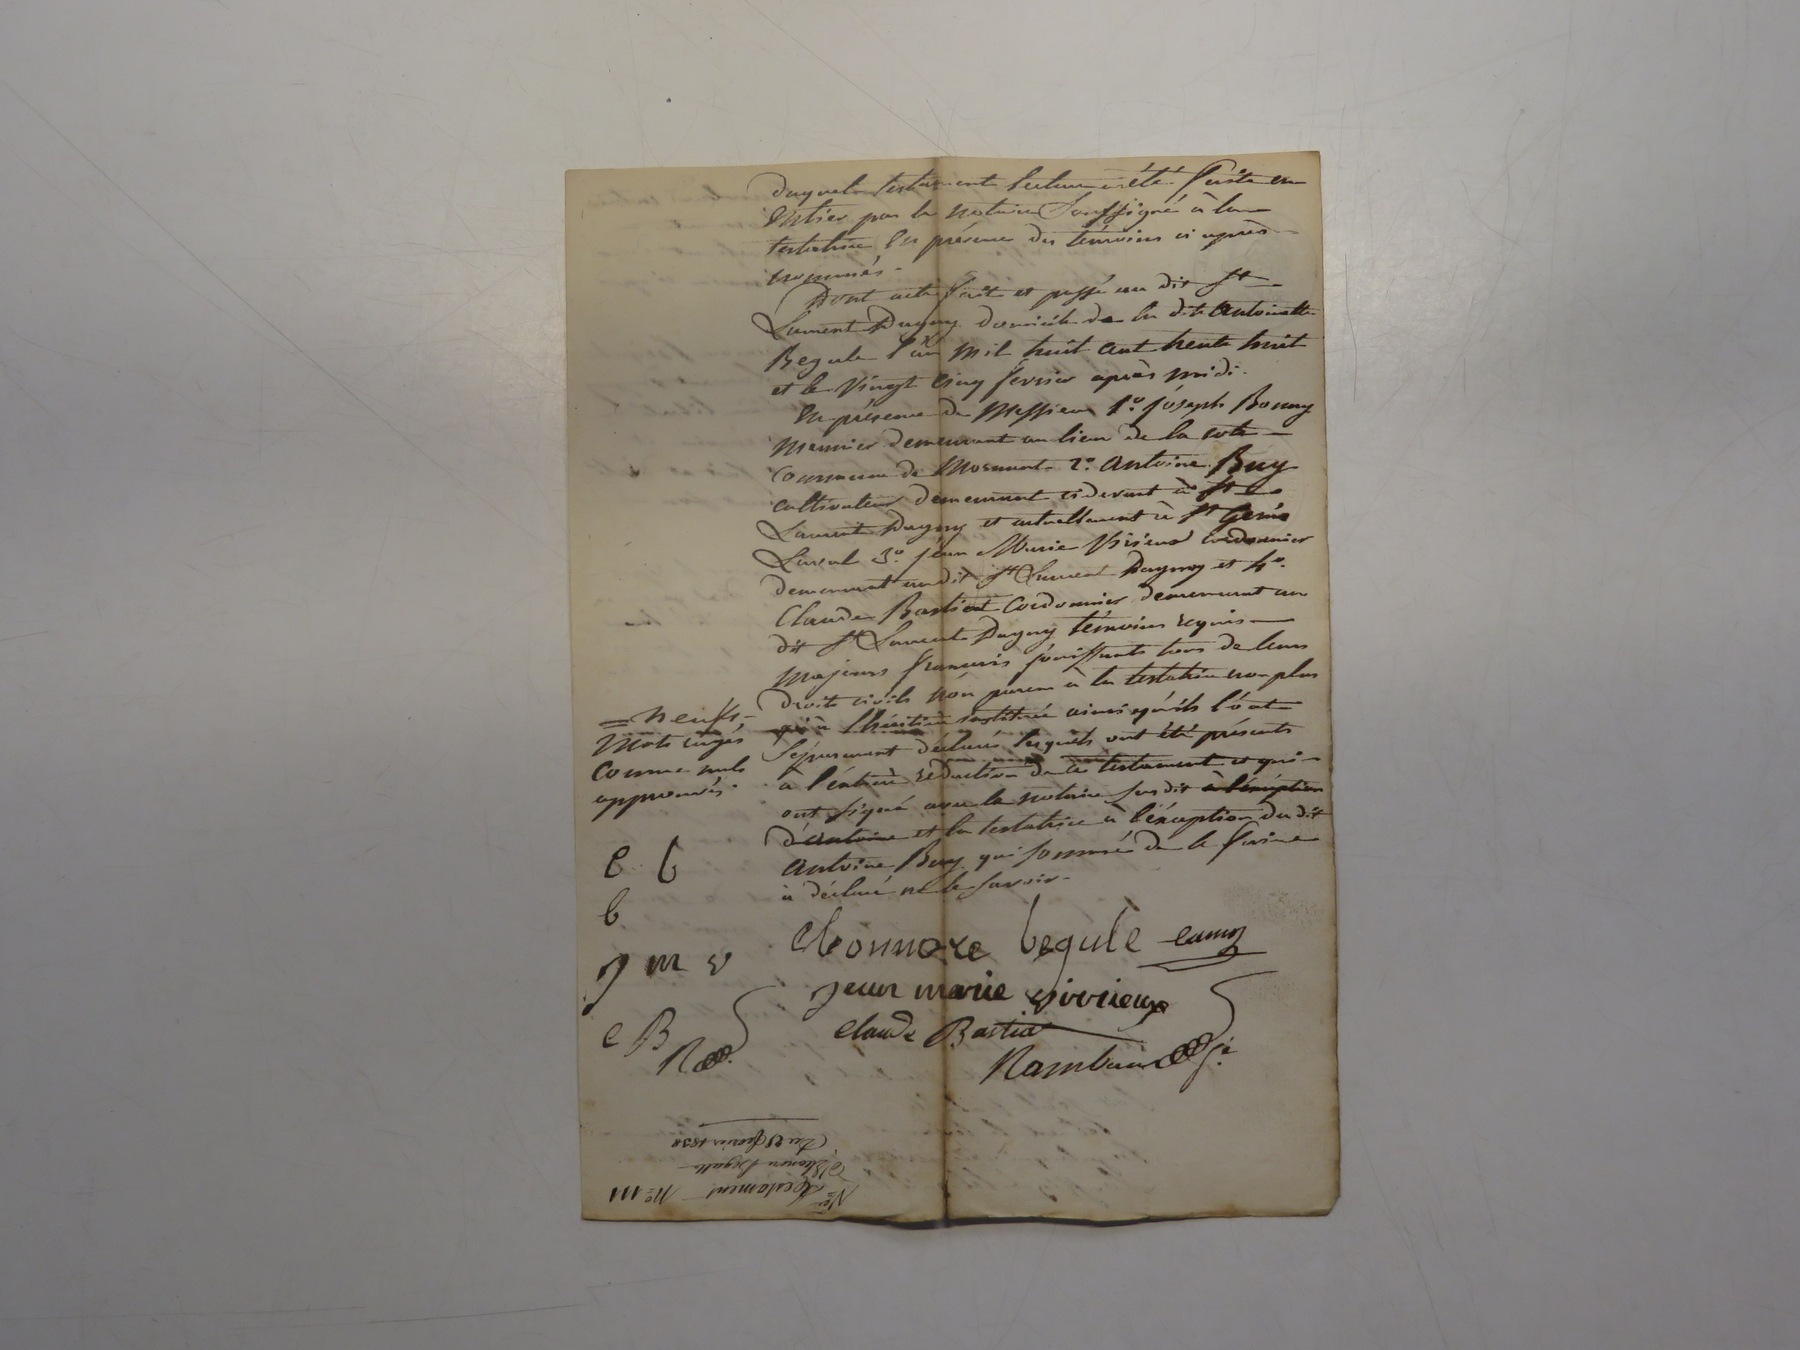 Duquel testament lecture a été faite en
Entier par le notaire Soussigné à la
testatrice En présence des témoins ci après
nommés.
Dont acte fait et passé au dit St
Laurent Dagny domicile de la dite Antoinette
Begule l'an mil huit cent trente huit
et le vingt cinq février après midi.
En présence de Messieurs 1º. Joseph Bonny
Meunier demeurant au lieu de la cote
Commune de Mornant 2º. Antoine Buy
cultivateur demeurant cidevant à St
Laurent Dagny et actuellement à St Genis
3º. Jean Marie Virieux Cordonnier
demeurant au dit St Laurent Dagny et 4º.
Claude Bastiat Cordonnier demeurant au
dit St Laurent Dagny témoins requis
majeurs français jouissants tous de leurs
droits civils non parens à la testatrice non plus
qu'à l'héritière instituée ainsi qu'ils l'ont
Séparement déclaré lesquels ont été présents
à l'entière rédaction de ce testament et qui
ont signé avec le notaire susdit à l'éxeption
d'antoine et la testatrice à l'éxception du dit
Antoine Buy qui sommé de le faire
a déclaré ne le savoir.
= neufs
Mots rayés
Comme nuls
approuvés.
e b
b
J m v
C B
R
Eleonnore begule
Jean marie virrieux
Claude Bastia
Rambaud
Nº 111
Testament
Eleonore Begule
Du 25 février 1838